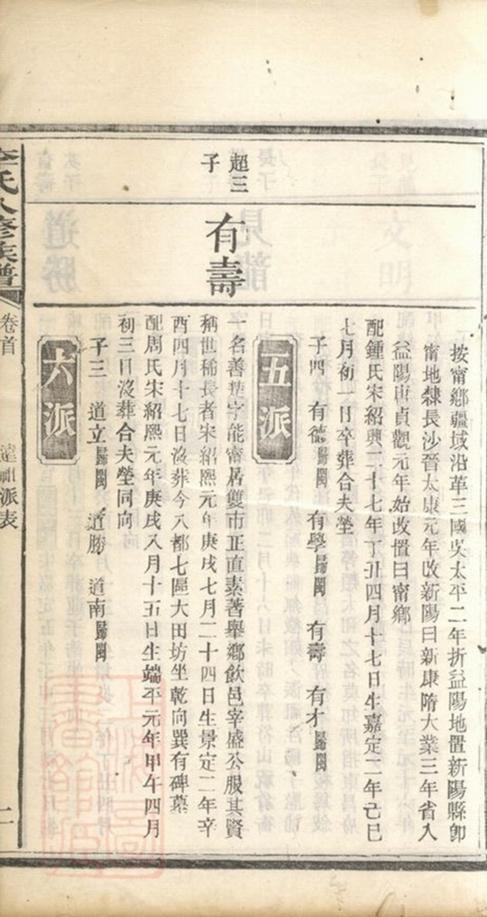 按甯鄉疆域沿革三國吳太平二年折益陽地置新陽縣卽
甯地隸長沙晉太康元年改新陽曰新康隋大業三年省入
益陽唐貞觀元年始改置曰甯鄉
配鍾氏宋紹興二十七年丁丑四月十七日生嘉定二年己巳
七月初一日卒葬合夫塋
子四 有德歸閩 有學歸閩 有壽 有才歸閩
五派
超三子
有壽
一名善楚字能甯居雙市正直素著舉鄉飲邑宰盛公服其賢
稱世稀長者宋紹熙元年庚戌七月二十四日生景定二年辛
酉四月十七日沒葬今八都七區大田坊坐乾向巽有碑墓
配周氏宋紹熙元年庚戌八月十五日生端平元年甲午四月
初三日沒葬合夫塋同向
子三 道立歸閩 道勝 道南歸閩
六派
李氏八修族譜
卷首
派表
二